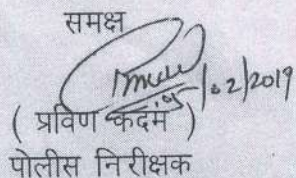 समक्ष
02/2019
( प्रविण कदम )
पोलीस निरीक्षक